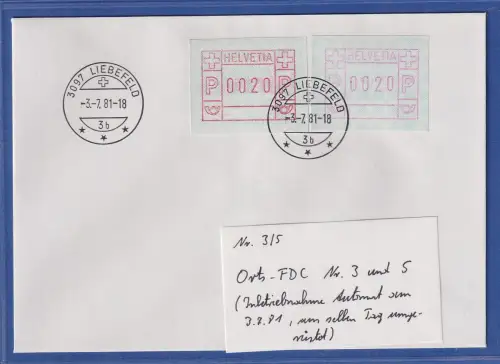 HELVETIA
P 0020 P
HELVETIA
P 0020 P
3097 LIEBEFELD
-3.-7. 81-18
3b
3097 LIEBEFELD
-3.-7. 81-18
3b
Nr. 3/5
Orts-FDC Nr. 3 und 5
(Inbetriebnahme Automat am
3.8.81, am selben Tag umge-
rüstet)